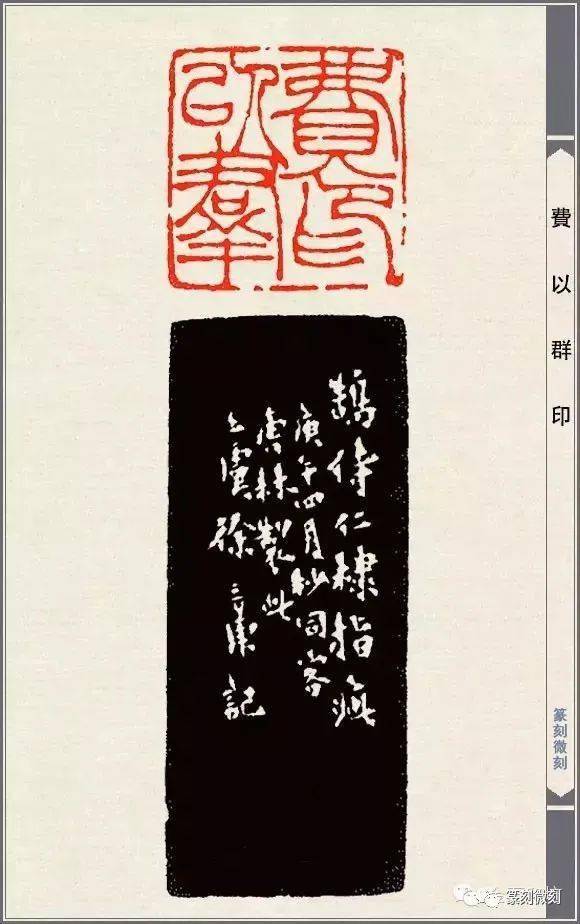 費印
以羣
鵠侍仁棣指疵
庚午四月杪同客
虎林製此
上虞徐三庚記
費以群印
篆刻微刻
篆刻微刻